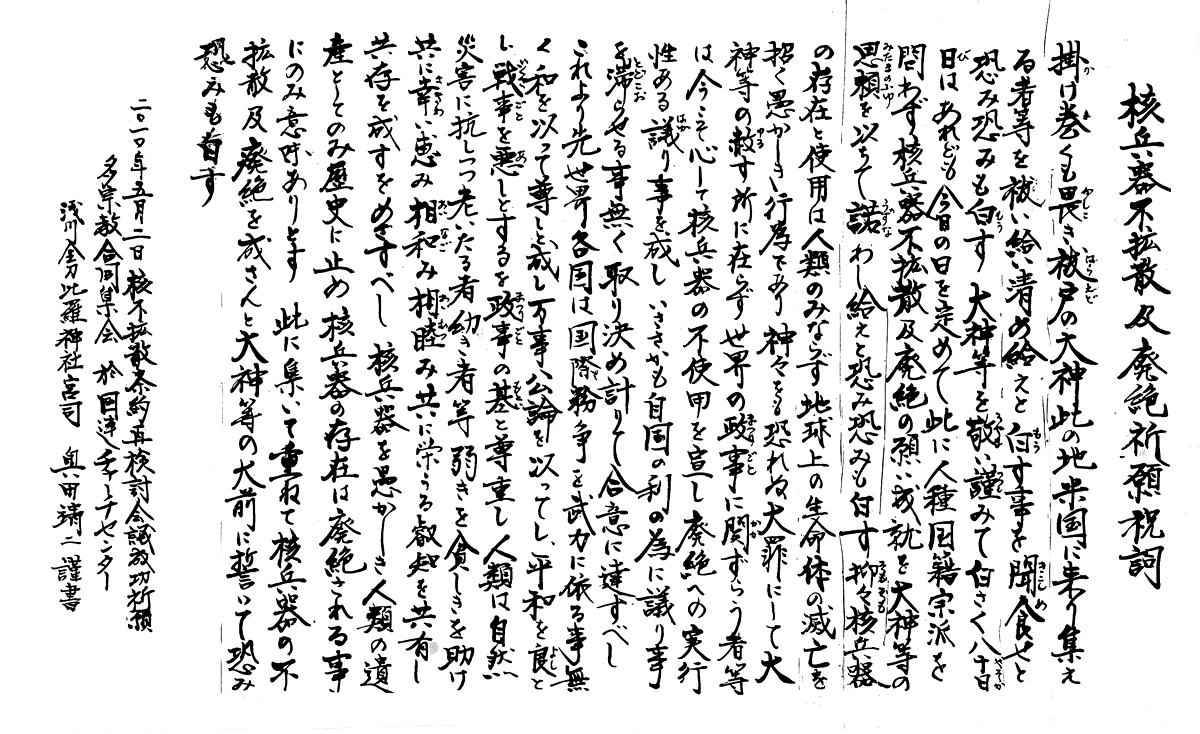 核兵器不拡散及廃絶祈願祝詞
掛け巻くも畏き祓戸の大神此の地米国に来り集え
る者等を祓い給い清め給えと白す事を聞食せと
恐み恐みも白す 大神等を敬い謹みて白さく八十日
日はあれども今日の日を定めて此に人種国籍宗派を
問わず核兵器不拡散及廃絶の願い成就を大神等の
恩頼を以ちて諾わし給えと恐み恐みも白す 抑々核兵器
の存在と使用は人類のみならず地球上の生命体の滅亡を
招く愚かしき行為であり神々をも恐れぬ大罪にして大
神等の赦す所に在らず世界の政事に関ずらう者等
は今こそ心して核兵器の不使用を宣し廃絶への実行
性ある議り事を成し いささかも自国の利の為に議り事
を滞らせる事無く取り決め計りて合意に達すべし
これより先世界各国は国際務争を武力に依る事無
く和を以って尊しと成し万事公論を以ってし、平和を良と
し戦事を悪しとするを政事の基と尊重し人類は自然
災害に抗しつつ老いたる者幼き者等弱きを貧しきを助け
共に幸い恵み相和み相睦み共に栄うる叡知を共有し
共存を成すをめざすべし 核兵器を愚かしき人類の遺
産としてのみ歴史に止め核兵器の存在は廃絶される事
にのみ意味ありとす 此に集いて重ねて核兵器の不
拡散及廃絶を成さんと大神等の大前に誓いて恐み
恐みも白す
二〇一〇年五月二日 核不拡散条約再検討会議成功祈願
多宗教合同集会 於 国連チャーチセンター
浅川金刀比羅神社宮司 奥田靖二謹書